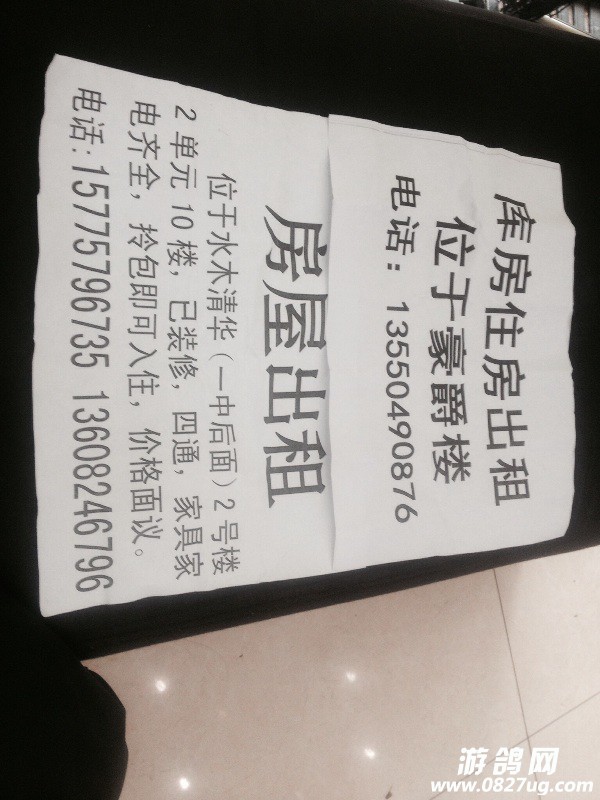 库房住房出租
位于豪爵楼
电话：13550490876
房屋出租
位于水木清华（一中后面）2号楼
2单元10楼，已装修，四通，家具家
电齐全，拎包即可入住，价格面议。
电话:15775796735 13608246796
游鸽网
www.0827ug.com